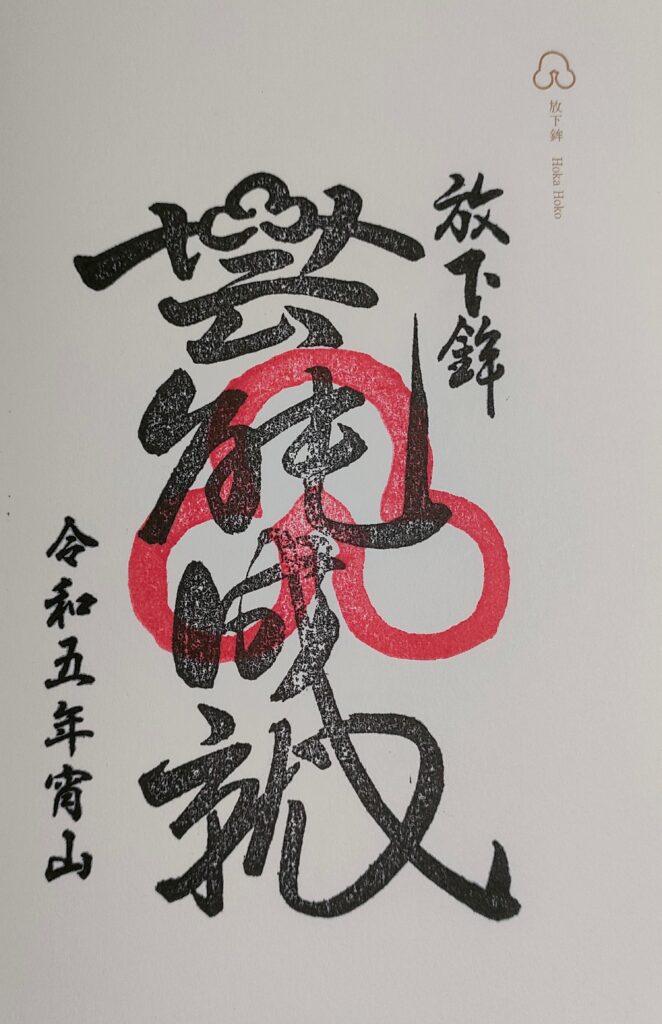 放下鉾 Hoka Hoko
放下鉾
芸能成就
令和五年宵山